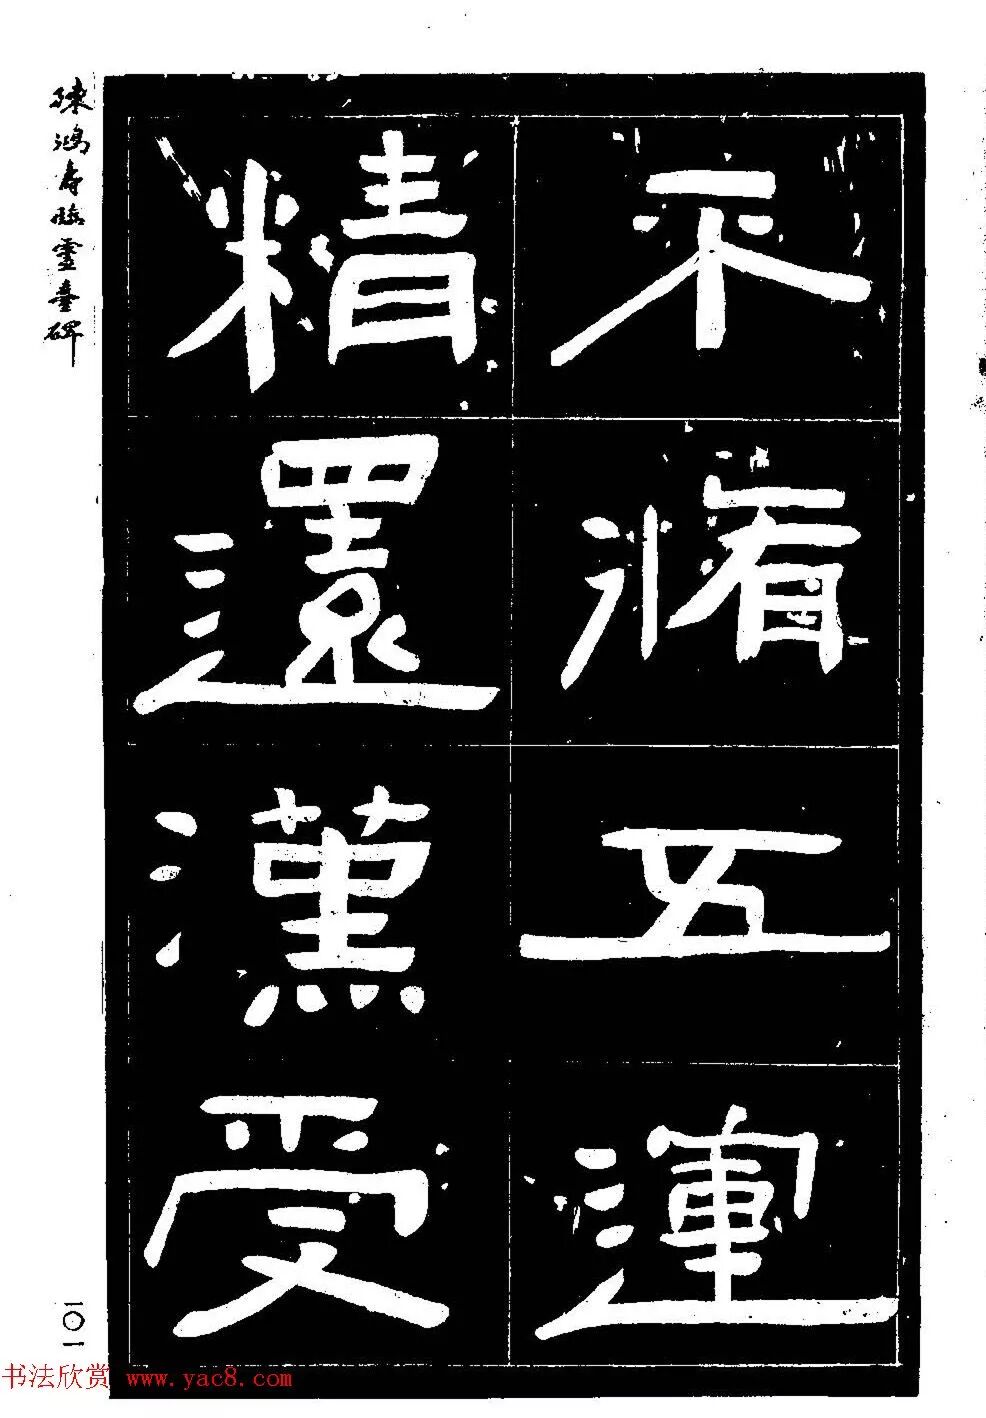 不脩五運
精還漢受
陳鴻寿臨靈臺碑
一〇一
书法欣赏 www.yac8.com